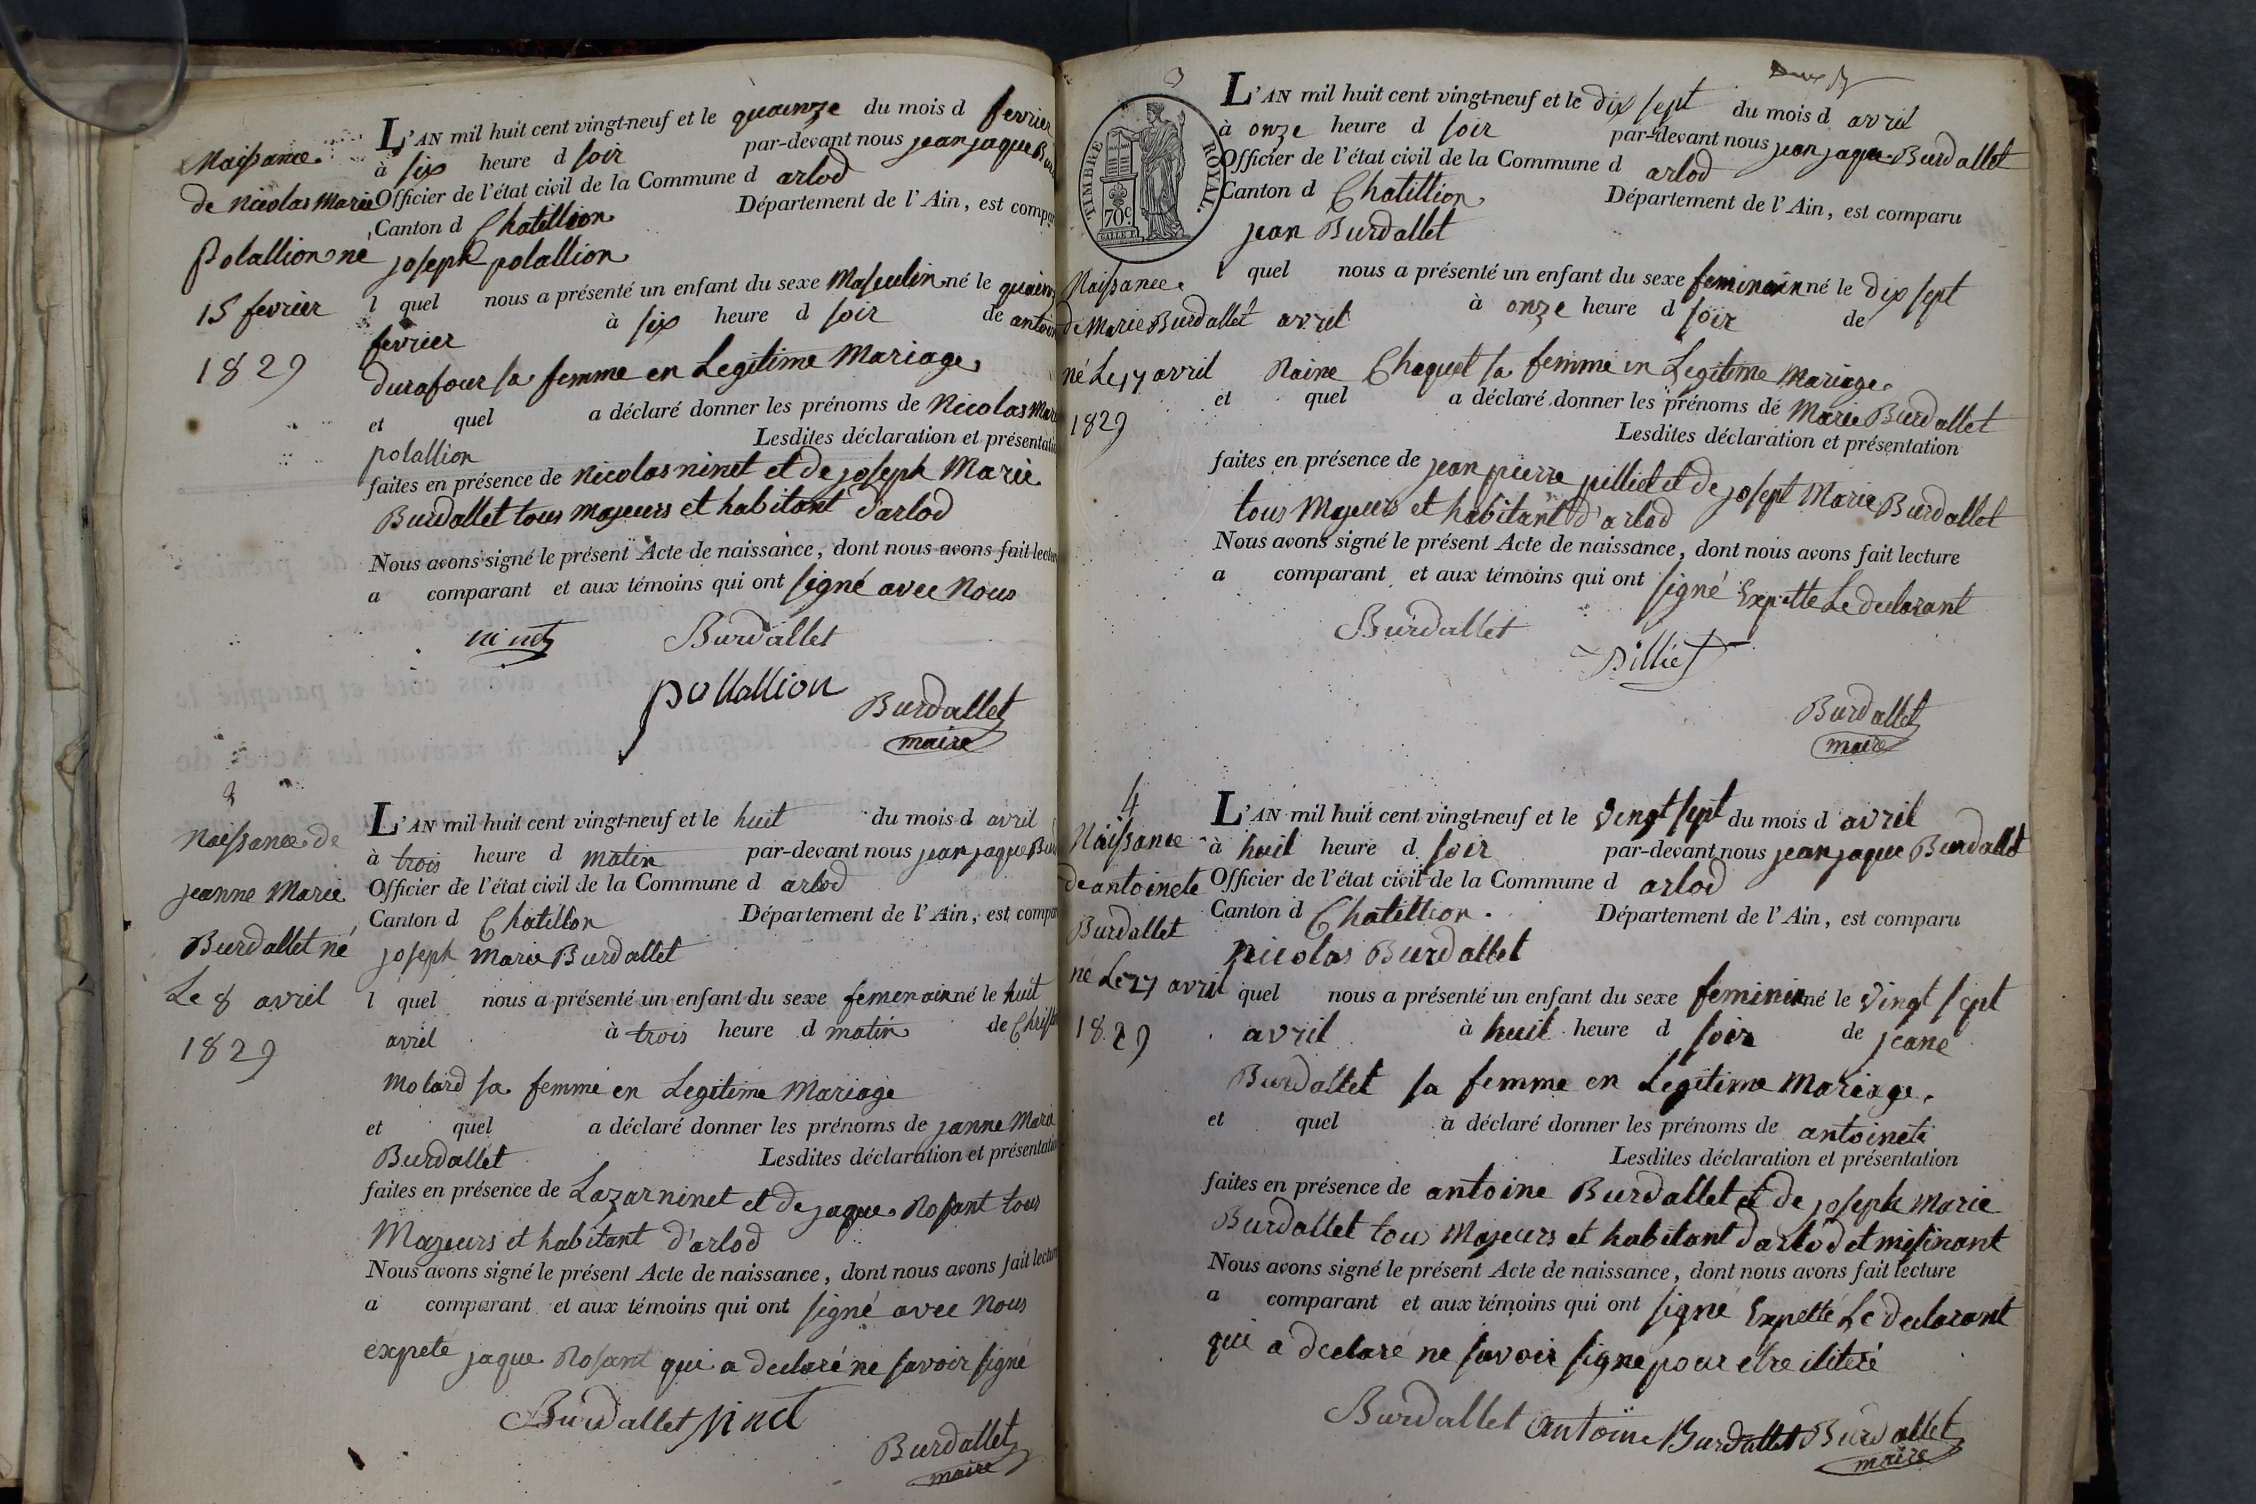 Naissance
de nicolas marie
polallion né
15 fevrier
1829
L'AN mil huit cent vingt-neuf et le quainze du mois d fevrier
à six heure d soir par-devant nous jean jaque
Officier de l'état civil de la Commune d arlod
Canton d Chatillion Département de l'Ain, est
joseph polallion
l quel nous a présenté un enfant du sexe masculin né le
fevrier à six heure d soir de
durafour sa femme en Legitime mariage
et quel a déclaré donner les prénoms de nicolas
polallion Lesdites déclaration et
faites en présence de nicolas ninet et de joseph marie
Burdallet tous majeurs et habitant d'arlod
Nous avons signé le présent Acte de naissance, dont nous avons fait
a comparant et aux témoins qui ont signé avec nous
ninet Burdallet
pollallion Burdallet
maire
2
naissance de
jeanne marie
Burdallet né
Le 8 avril
1829
L'AN mil huit cent vingt-neuf et le huit du mois d avril
à trois heure d matin par-devant nous jean jaque
Officier de l'état civil de la Commune d arlod
Canton d Chatillon Département de l'Ain, est
joseph marie Burdallet
l quel nous a présenté un enfant du sexe femenain né le huit
avril à trois heure d matin de
molard sa femme en Legitime mariage
et quel a déclaré donner les prénoms de janne
Burdallet Lesdites déclaration et
faites en présence de Lazar ninet et de jaque Rosant tous
majeurs et habitant d'arlod
Nous avons signé le présent Acte de naissance, dont nous avons fait
a comparant et aux témoins qui ont signé avec nous
expeté jaque Rosant qui a declaré ne savoir signé
Burdallet Ninet
Burdallet
maire
3
TIMBRE ROYAL.
70c
Naissance
de marie Burdallet
né Le 17 avril
1829
L'AN mil huit cent vingt-neuf et le dix sept du mois d avril
à onze heure d soir par-devant nous jean jaque Burdallet
Officier de l'état civil de la Commune d arlod
Canton d Chatillion Département de l'Ain, est comparu
jean Burdallet
l quel nous a présenté un enfant du sexe feminain né le dix sept
avril à onze heure d soir de
naine Chaquet sa femme en Legitime mariage
et quel a déclaré donner les prénoms de marie Burdallet
Lesdites déclaration et présentation
faites en présence de jean pierre pilliet et de josept marie Burdallet
tous majeurs et habitant d'arlod
Nous avons signé le présent Acte de naissance, dont nous avons fait lecture
a comparant et aux témoins qui ont signé Expette Le declarant
Burdallet
Pilliet
Burdallet
maire
4
Naissance
de antoinete
Burdallet
né Le 27 avril
1829
L'AN mil huit cent vingt-neuf et le vingt sept du mois d avril
à huit heure d soir par-devant nous jean jaque Burdallet
Officier de l'état civil de la Commune d arlod
Canton d Chatillion. Département de l'Ain, est comparu
nicolas Burdallet
quel nous a présenté un enfant du sexe feminin né le vingt sept
avril à huit heure d soir de jeane
Burdallet sa femme en Legitime mariage.
et quel a déclaré donner les prénoms de antoinete
Lesdites déclaration et présentation
faites en présence de antoine Burdallet et de joseph marie
Burdallet tous majeurs et habitant d'arlod et
Nous avons signé le présent Acte de naissance, dont nous avons fait lecture
a comparant et aux témoins qui ont signé Expetté Le declarant
qui a declaré ne savoir signé pour etre ilitéré
Burdallet antoine Burdallet Burdallet
maire